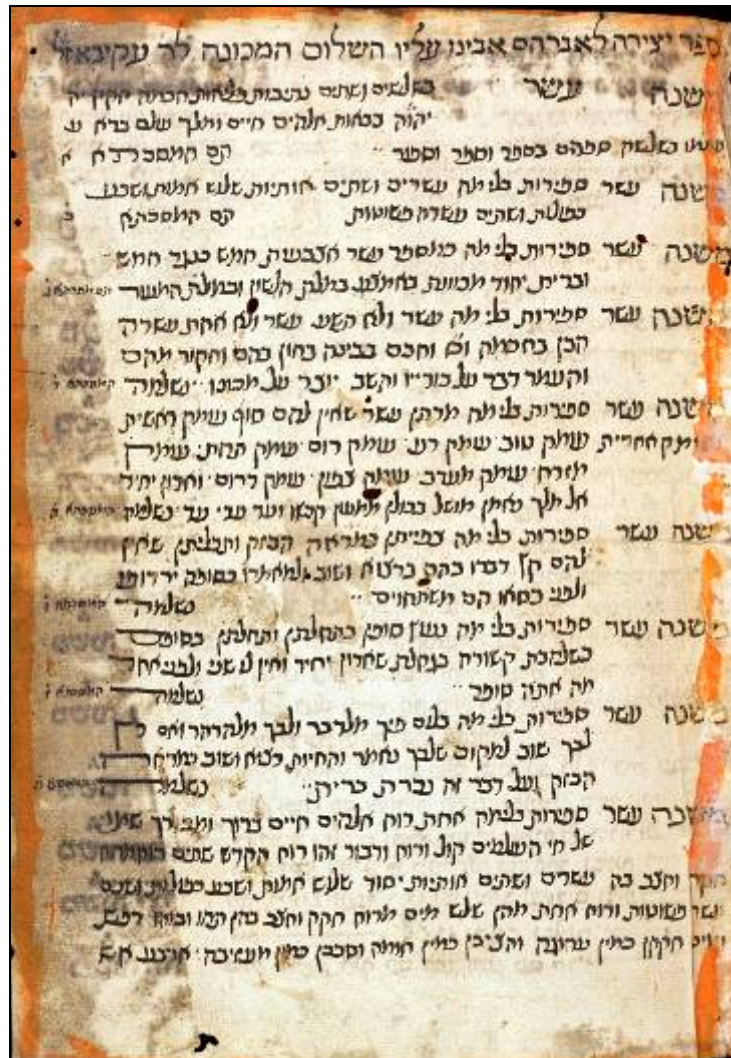 ספר יצירה לאברהם אבינו עליו השלום המכונה לר עקיבא ז״ל
משנה עשר בשלשים ושתים נתיבות פלאות חכמה חקק יה
יהוה צבאות אלהים חיים ומלך עולם ברא
בשלשה ספרים בספר וספר וספר
משנה עשר ספירות בלי מה עשרים ושתים אותיות שלש אמות ושבע
כפולות ושתים עשרה פשוטות
משנה עשר ספירות בלי מה במספר עשר אצבעות חמש כנגד חמש
וברית יחוד מכוונת באמצע במלת הלשון ובמילת המעור
משנה עשר ספירות בלי מה עשר ולא תשע עשר ולא אחת עשרה
הבן בחכמה וחכם בבינה בחון בהם וחקור מהם
והעמד דבר על בוריו והשב יוצר על מכונו
משנה עשר ספירות בלי מה מדתן עשר שאין להם סוף עומק ראשית
ועומק אחרית עומק טוב עומק רע עומק רום עומק תחת עומק
מזרח עומק מערב עומק צפון עומק דרום ואדון יחיד
אל מלך נאמן מושל בכולן ממעון קדשו ועד עדי עד
משנה עשר ספירות בלי מה צפייתן כמראה הבזק ותכליתן שאין
להם קץ דברו בהם ברצוא ושוב ולמאמרו כסופה ירדופו
ולפני כסאו הם משתחוים
משנה עשר ספירות בלי מה נעוץ סופן בתחלתן ותחלתן בסופן
כשלהבת קשורה בגחלת שאדון יחיד ואין לו שני ולפני אחד
מה אתה סופר
משנה עשר ספירות בלי מה בלום פיך מלדבר ולבך מלהרהר ואם רץ
לבך שוב למקום שלכך נאמר והחיות רצוא ושוב כמראה
הבזק ועל דבר זה נכרת ברית
משנה עשר ספירות בלימה אחת רוח אלהים חיים ברוך ומבורך שמו
של חי העולמים קול ורוח ודבור וזהו רוח הקדש שתים רוח מרוח
חקק וחצב בה עשרים ושתים אותיות יסוד שלש אמות ושבע כפולות ושתים
עשר פשוטות ורוח אחת מהן שלש מים מרוח חקק וחצב בהן תהו ובוהו רפש
וטיט חקקן כמין ערוגה הציבן כמין חומה וסככן כמין מעזיבה ארבע אש